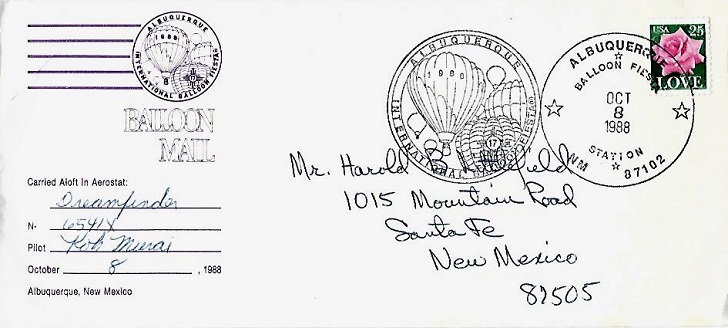 ALBUQUERQUE
1988
INTERNATIONAL BALLOON FIESTA
BALLOON
MAIL
Carried Aloft In Aerostat:
Dreamfinder
N- 6541X
Pilot Koh Murai
October 8, 1988
Albuquerque, New Mexico
ALBUQUERQUE
INTERNATIONAL BALLOON FIESTA
17
ALBUQUERQUE
BALLOON FIESTA
OCT
8
1988
STATION
NM 87102
USA 25
LOVE
Mr. Harold B.
1015 Mountain Road
Santa Fe
New Mexico
87505